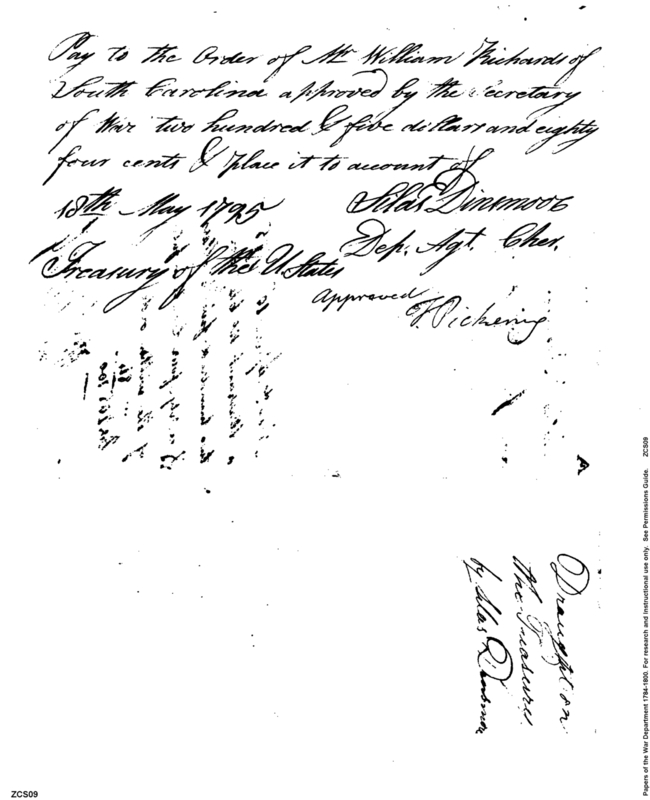 Pay to the Order of Mr William Richards of
South Carolina approved by the Secretary
of War two hundred & five dollars and eighty
four cents & place it to account of
18th May 1795
Silas Dinsmoor
Dep. Agt. Cher.
Treasury of the U States
approved
T. Pickering
Draught on
the Treasury
by Silas Dinsmoor
Papers of the War Department 1784-1800. For research and instructional use only. See Permissions Guide. ZCS09
ZCS09